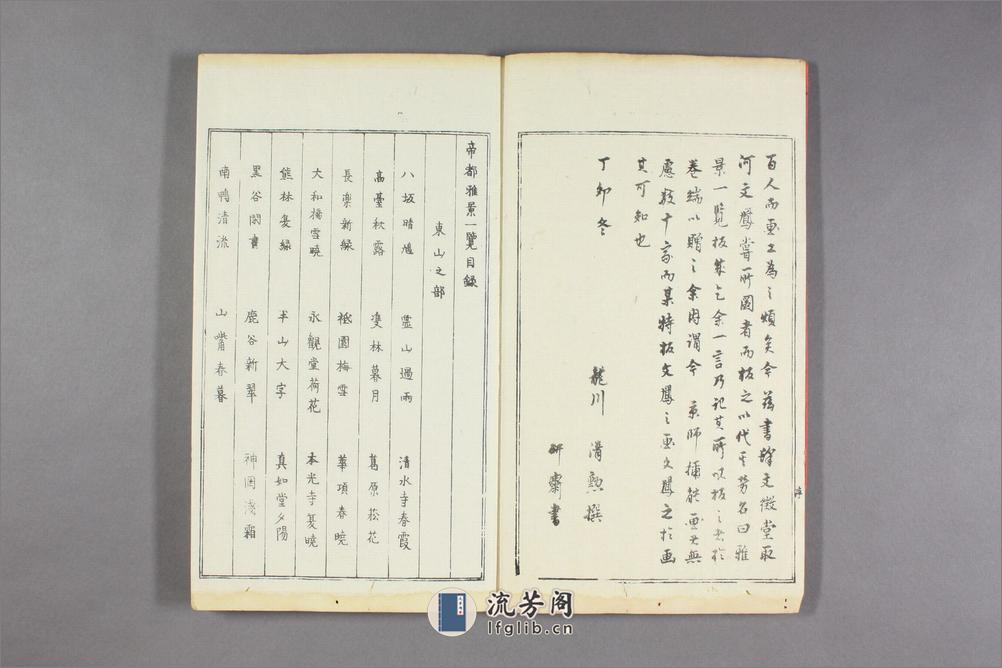 百人而画工為之煩矣今茲書肆文徵堂取
河文鳳嘗所図者而板之以代其労名曰雅
景一覧板成乞余一言乃記其所以板之者於
巻端以贈之余因謂今 京師描能画者無
慮數十家而某特板文鳳之画文鳳之於画
其可知也
丁卯冬
龍川 清勲撰
研齋書
序
帝都雅景一覽目録
東山之部
八坂晴鳩 霊山過雨 清水寺春霞
高臺秋露 雙林暮月 葛原菘花
長楽新緑 祗園梅雪 華項春曉
大和橋雪曉 永觀堂荷花 本光寺夏曉
熊林夏緑 半山大字 真如堂夕陽
黒谷閣書 鹿谷新翠 神岡淺霜
南鴨清流 山觜春暮
流芳阁
lfglib.cn